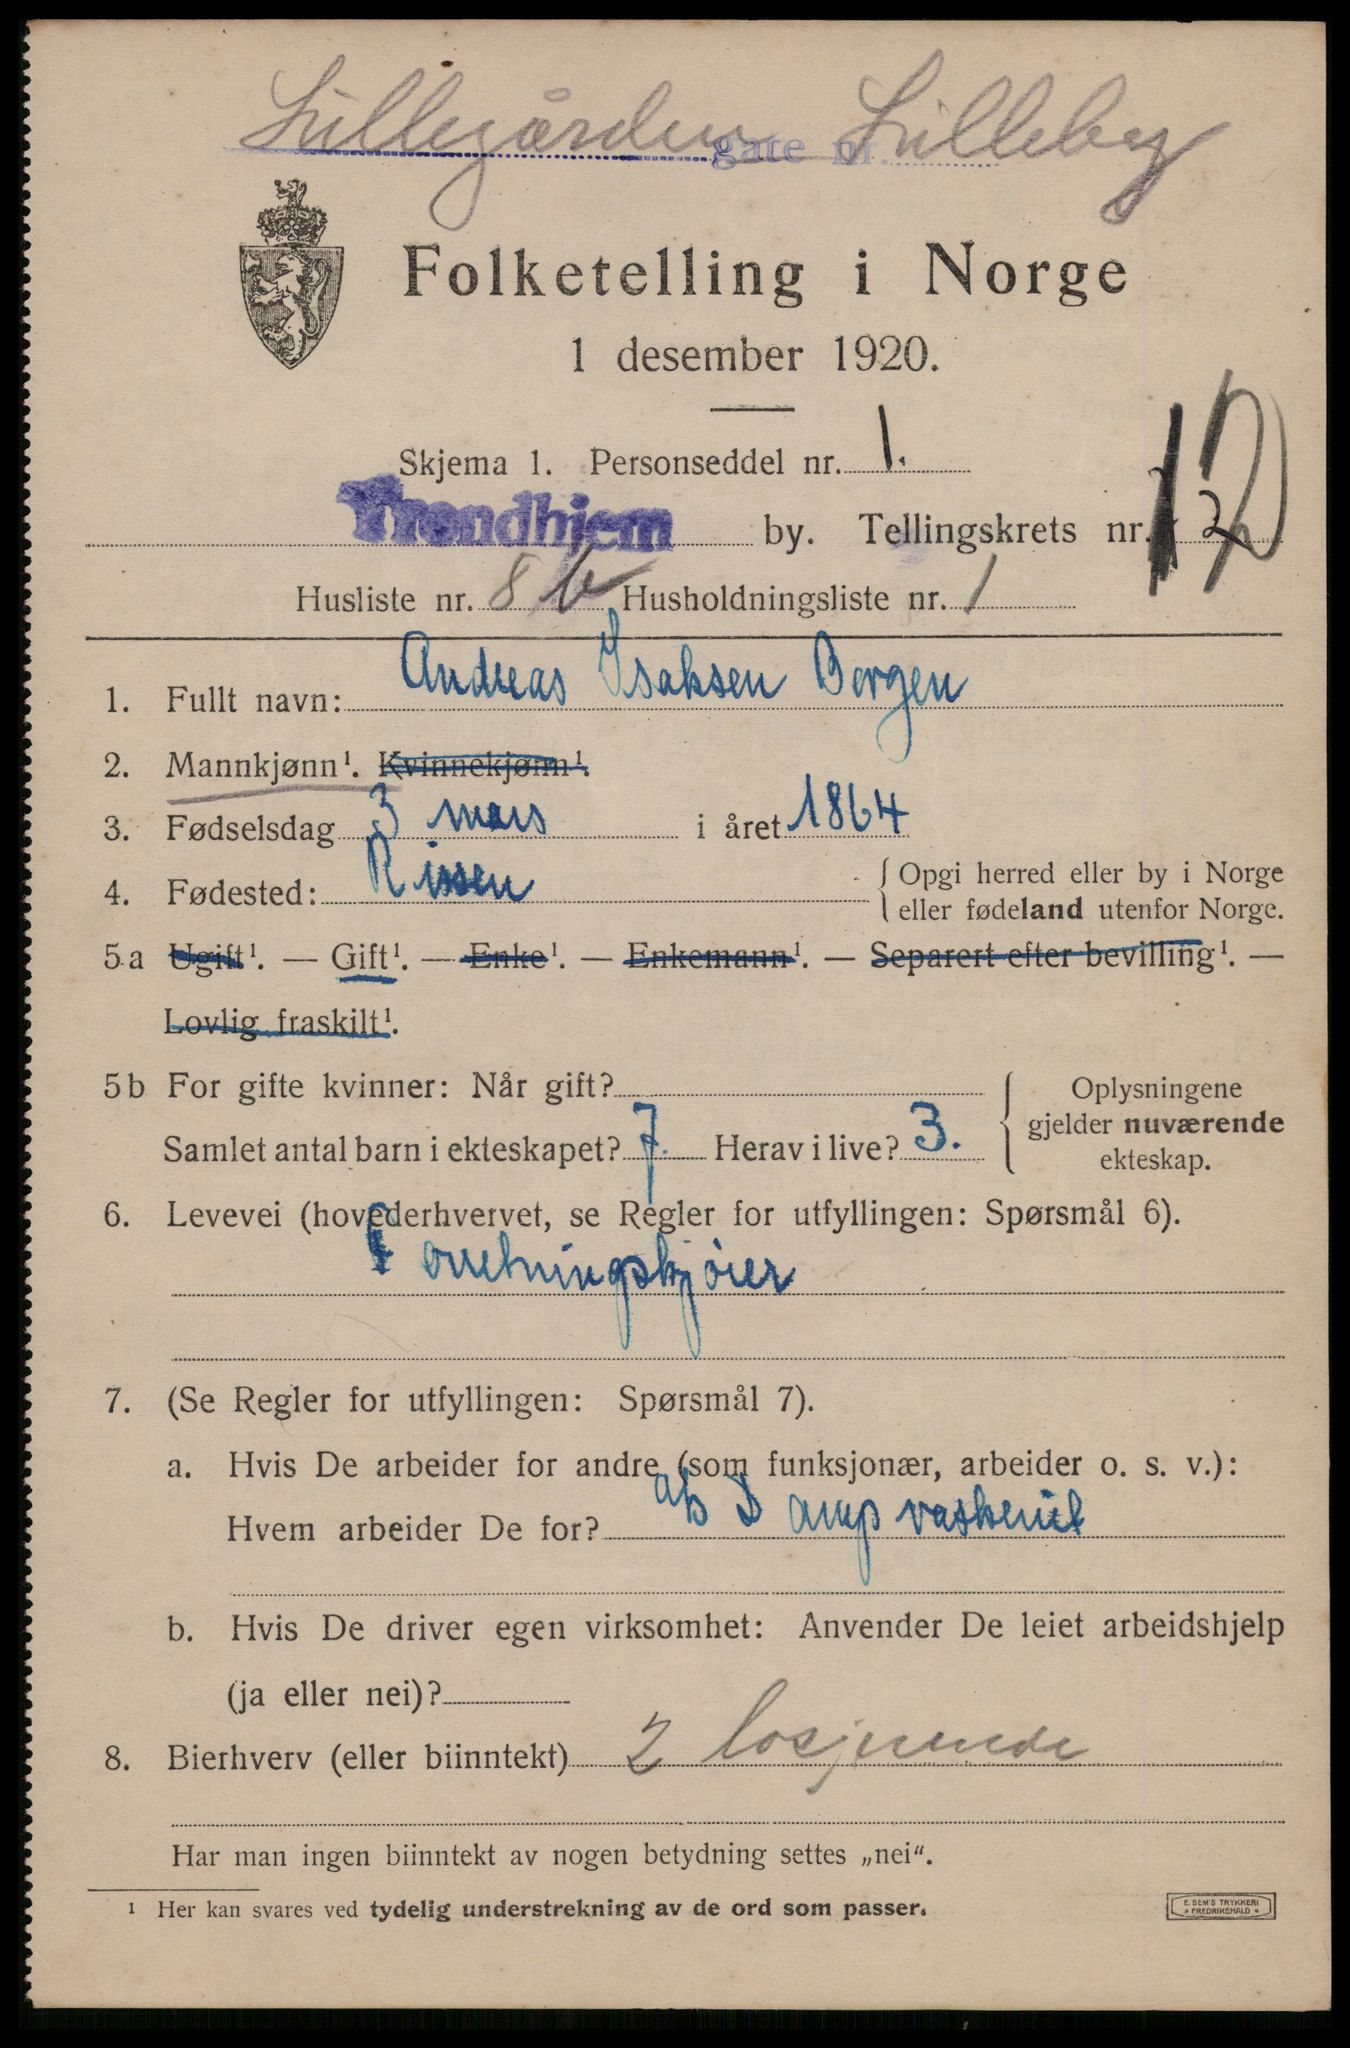 Lillegården gate nr. Lilleby
Folketelling i Norge
1 desember 1920.
Skjema 1. Personseddel nr. 1.
Trondhjem by. Tellingskrets nr. 12
Husliste nr. 8 b Husholdningsliste nr. 1
1. Fullt navn: Andreas Isaksen Bergen
2. Mannkjønn¹. Kvinnekjønn¹.
3. Fødselsdag 3 mars i året 1864
4. Fødested: Rissen {Opgi herred eller by i Norge
eller fødeland utenfor Norge.
5a Ugift¹. — Gift¹. — Enke¹. — Enkemann¹. — Separert efter bevilling¹. —
Lovlig fraskilt¹.
5b For gifte kvinner: Når gift?
Samlet antal barn i ekteskapet? 7. Herav i live? 3.
{Oplysningene
gjelder nuværende
ekteskap.
6. Levevei (hovederhvervet, se Regler for utfyllingen: Spørsmål 6).
Forretningskjører
7. (Se Regler for utfyllingen: Spørsmål 7).
a. Hvis De arbeider for andre (som funksjonær, arbeider o. s. v.):
Hvem arbeider De for? Dampvaskeriet
b. Hvis De driver egen virksomhet: Anvender De leiet arbeidshjelp
(ja eller nei)?
8. Bierhverv (eller biinntekt) 2 losjerende
Har man ingen biinntekt av nogen betydning settes „nei“.
¹ Her kan svares ved tydelig understrekning av de ord som passer.
E. SEM'S TRYKKERI
FREDRIKSHALD